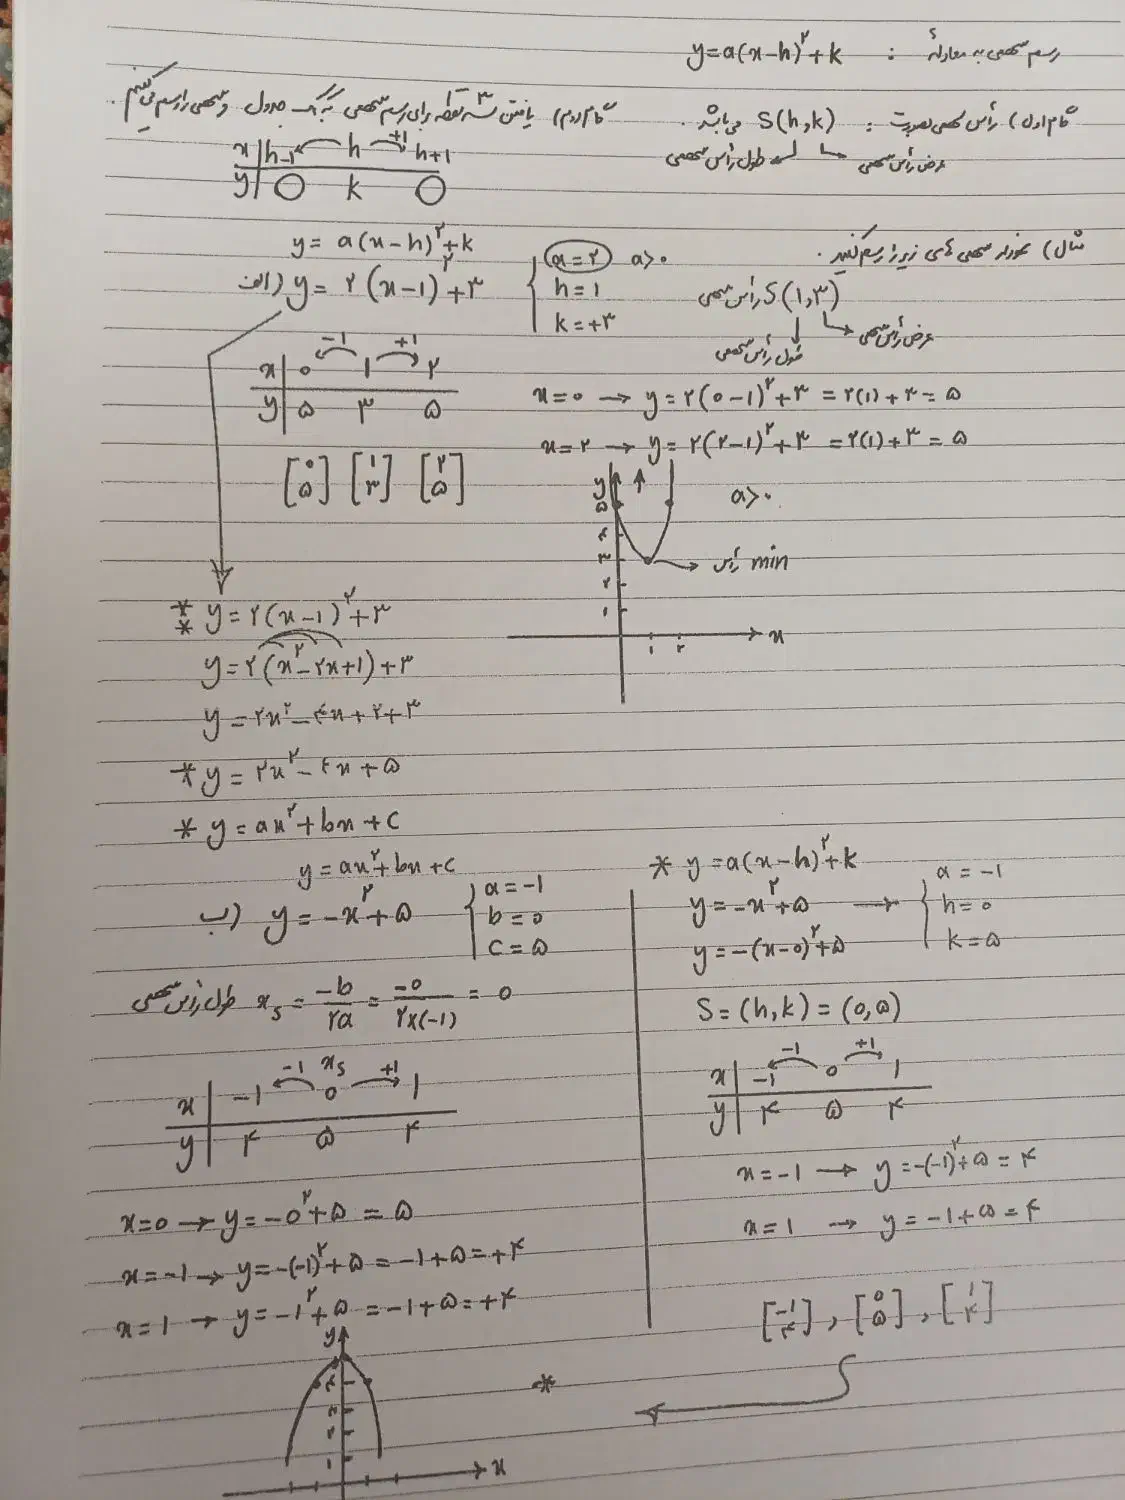 رسم سهمی به معادلهٔ : y=a(x-h)^۲+k
گام اول) رأس سهمی بصورت : S(h,k) می باشد.
طول رأس سهمی
عرض رأس سهمی
گام دوم) یافتن ۳ نقطه برای رسم سهمی به کمک جدول و سهمی را رسم می کنیم.
x | h-1 h +1 h+1
y | ○ k ○
مثال) نمودار سهمی های زیر را رسم کنید.
y= a(x-h)^۲+k
الف) y= ۲(x-1)^۲+۳ { a=۲ a>۰
h=1
k=+۳
رأس سهمی S(1,۳)
طول رأس سهمی
عرض رأس سهمی
-1 +1
x | ۰ 1 ۲
y | ۵ ۳ ۵
x=۰ → y=۲(۰-1)^۲+۳ =۲(1)+۳=۵
x=۲ → y=۲(۲-1)^۲+۳ =۲(1)+۳=۵
[۰ ۵] [1 ۳] [۲ ۵]
y
۵
۴
۳
۲
۱
a>۰
رأس min
x
۱ ۲
** y=۲(x-1)^۲+۳
y=۲(x^۲-۲x+1)+۳
y=۲x^۲-۴x+۲+۳
* y=۲x^۲-۴x+۵
* y=ax^۲+bx+c
y=ax^۲+bx+c
ب) y=-x^۲+۵ { a=-1
b=۰
c=۵
طول رأس سهمی x_s = -b/۲a = -۰/۲×(-1) = ۰
-1 x_s +1
x | -1 ۰ 1
y | ۴ ۵ ۴
x=۰ → y=-۰^۲+۵ =۵
x=-1 → y=-(-1)^۲+۵=-1+۵=+۴
x=1 → y=-1^۲+۵=-1+۵=+۴
* y=a(x-h)^۲+k
y=-x^۲+۵ → { a=-1
h=۰
k=۵
y=-(x-۰)^۲+۵
S=(h,k)=(۰,۵)
-1 +1
x | -1 ۰ 1
y | ۴ ۵ ۴
x=-1 → y=-(-1)^۲+۵=۴
x=1 → y=-1+۵=۴
[-1 ۴] , [۰ ۵] , [1 ۴]
*
y
۴
۳
۲
۱
x